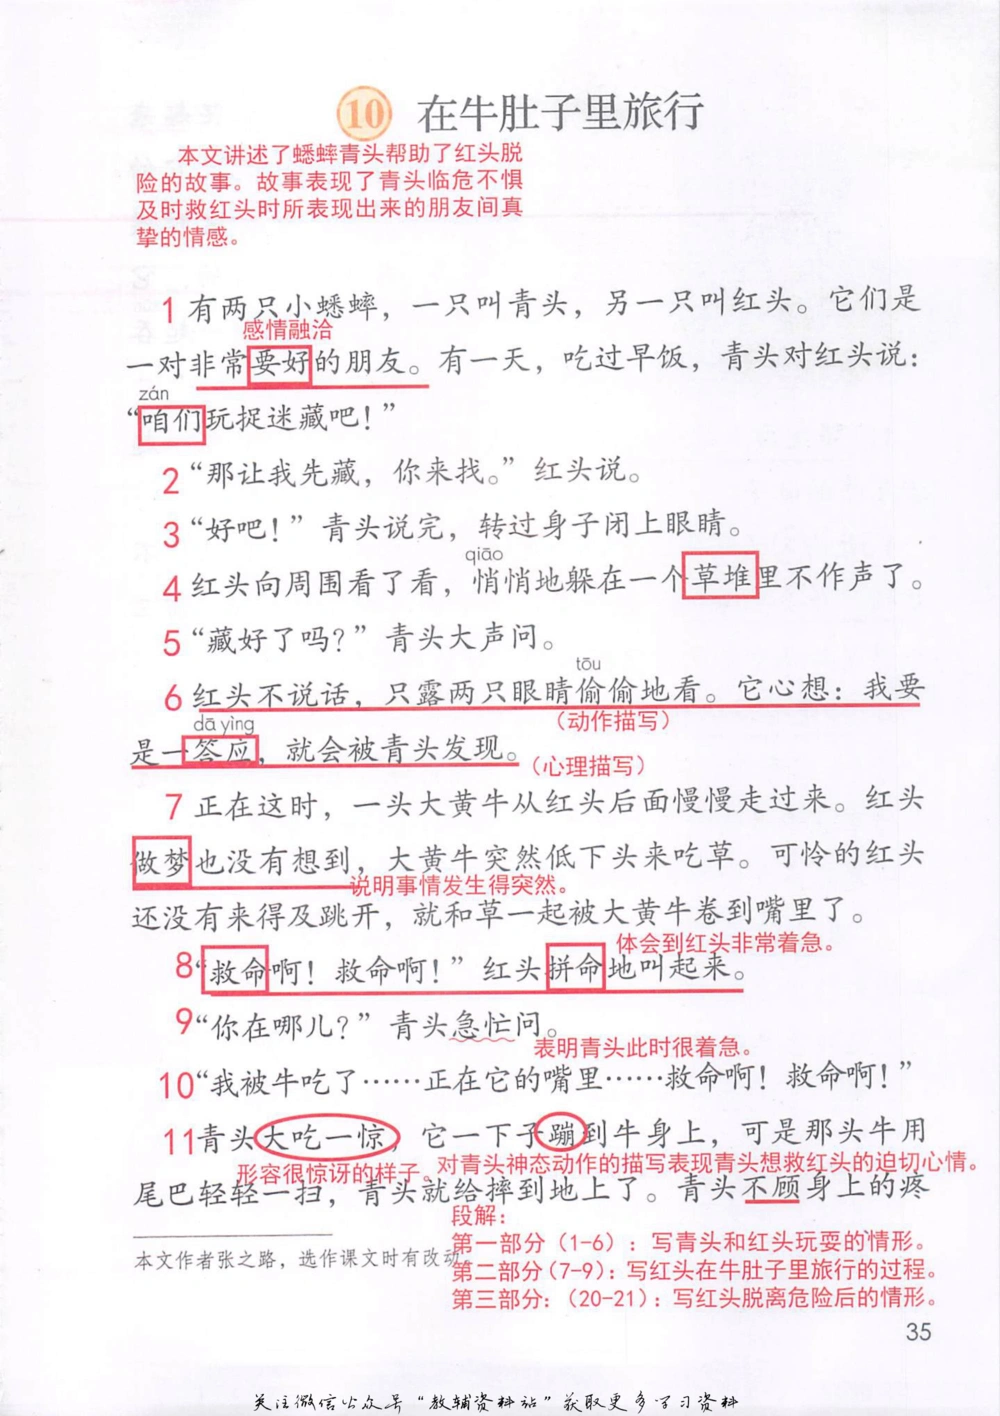 10 在牛肚子里旅行
本文讲述了蟋蟀青头帮助了红头脱
险的故事。故事表现了青头临危不惧
及时救红头时所表现出来的朋友间真
挚的情感。
1 有两只小蟋蟀，一只叫青头，另一只叫红头。它们是
感情融洽
一对非常要好的朋友。有一天，吃过早饭，青头对红头说：
zán
“咱们玩捉迷藏吧！”
2 “那让我先藏，你来找。”红头说。
3 “好吧！”青头说完，转过身子闭上眼睛。
qiāo
4 红头向周围看了看，悄悄地躲在一个草堆里不作声了。
5 “藏好了吗？”青头大声问。
tōu
6 红头不说话，只露两只眼睛偷偷地看。它心想：我要
dā yìng
（动作描写）
是一答应，就会被青头发现。
（心理描写）
7 正在这时，一头大黄牛从红头后面慢慢走过来。红头
做梦也没有想到，大黄牛突然低下头来吃草。可怜的红头
说明事情发生得突然。
还没有来得及跳开，就和草一起被大黄牛卷到嘴里了。
体会到红头非常着急。
8 “救命啊！救命啊！”红头拼命地叫起来。
9 “你在哪儿？”青头急忙问。
表明青头此时很着急。
10 “我被牛吃了……正在它的嘴里……救命啊！救命啊！”
11 青头大吃一惊，它一下子蹦到牛身上，可是那头牛用
形容很惊讶的样子。对青头神态动作的描写表现青头想救红头的迫切心情。
尾巴轻轻一扫，青头就给摔到地上了。青头不顾身上的疼
段解：
第一部分（1-6）：写青头和红头玩耍的情形。
本文作者张之路，选作课文时有改动
第二部分（7-9）：写红头在牛肚子里旅行的过程。
第三部分：（20-21）：写红头脱离危险后的情形。
35
关注微信公众号“教辅资料站”获取更多学习资料